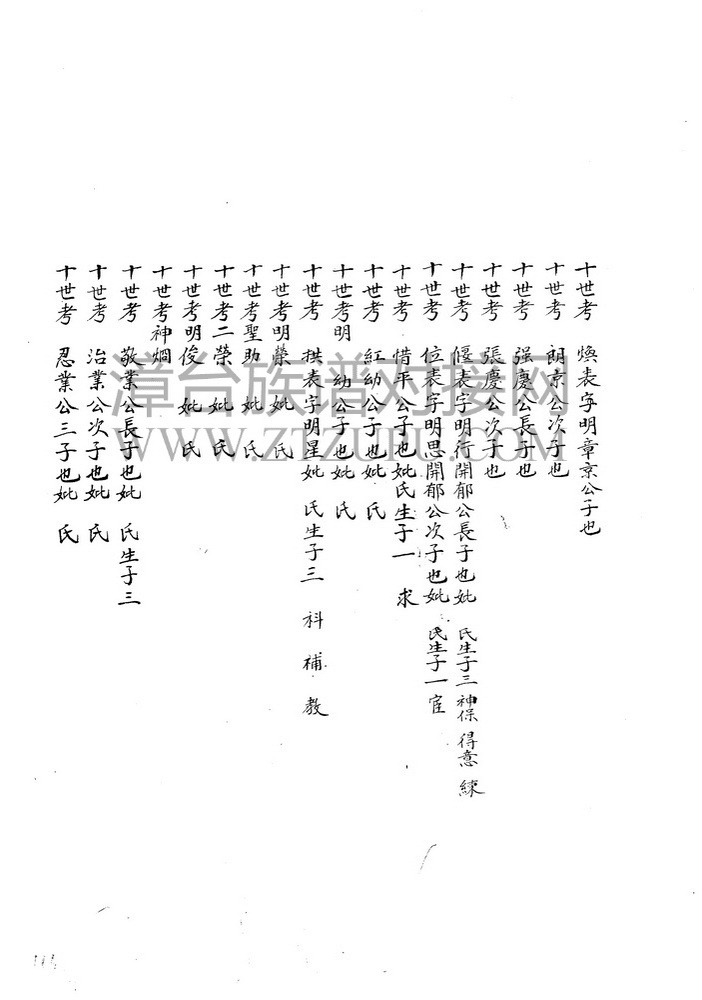 十世考 煥表字明章京公子也
十世考 朗京公次子也
十世考 强慶公長子也
十世考 張慶公次子也
十世考 偃表字明行開郁公長子也妣 氏生子三 神保 得意 練
十世考 位表字明思開郁公次子也妣 氏生子一 宦
十世考 惜平公子也妣氏生子一 求
十世考 紅幼公子也妣 氏
十世考明 幼公子也妣 氏
十世考 拱表字明星妣 氏生子三 科 補 教
十世考明榮 妣 氏
十世考聖助 妣 氏
十世考二榮 妣 氏
十世考明俊 妣 氏
十世考神烱
十世考 敬業公長子也妣 氏生子三
十世考 治業公次子也妣 氏
十世考 忍業公三子也妣 氏
漳台族谱对接网
WWW.ZTZUPU.COM